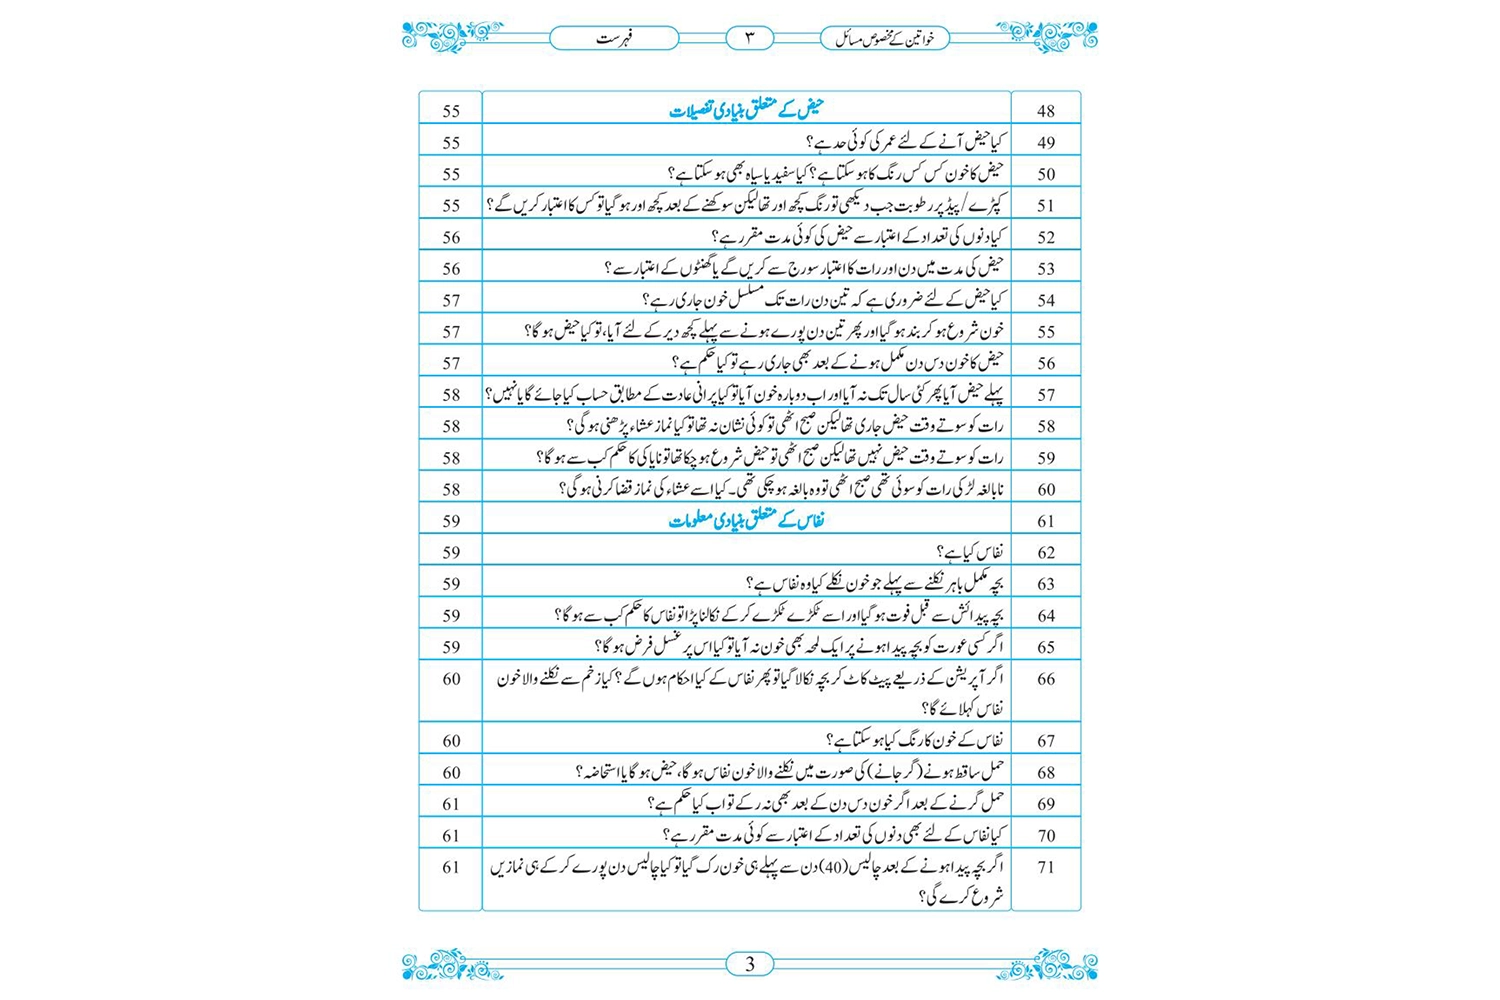 خواتین کے مخصوص مسائل ۳ فہرست
48 حیض کے متعلق بنیادی تفصیلات 55
49 کیا حیض آنے کے لئے عمر کی کوئی حد ہے؟ 55
50 حیض کا خون کس کس رنگ کا ہو سکتا ہے؟ کیا سفید یا سیاہ بھی ہو سکتا ہے؟ 55
51 کپڑے/پیڈ پر رطوبت جب دیکھی تو رنگ کچھ اور تھا لیکن سوکھنے کے بعد کچھ اور ہو گیا تو کس کا اعتبار کریں گے؟ 55
52 کیا دنوں کی تعداد کے اعتبار سے حیض کی کوئی مدت مقرر ہے؟ 56
53 حیض کی مدت میں دن اور رات کا اعتبار سورج سے کریں گے یا گھنٹوں کے اعتبار سے؟ 56
54 کیا حیض کے لئے ضروری ہے کہ تین دن رات تک مسلسل خون جاری رہے؟ 57
55 خون شروع ہو کر بند ہو گیا اور پھر تین دن پورے ہونے سے پہلے کچھ دیر کے لئے آیا، تو کیا حیض ہو گا؟ 57
56 حیض کا خون دس دن مکمل ہونے کے بعد بھی جاری رہے تو کیا حکم ہے؟ 57
57 پہلے حیض آیا پھر کئی سال تک نہ آیا اور اب دوبارہ خون آیا تو کیا پرانی عادت کے مطابق حساب کیا جائے گا یا نہیں؟ 58
58 رات کو سوتے وقت حیض جاری تھا لیکن صبح اٹھی تو کوئی نشان نہ تھا تو کیا نماز عشاء پڑھنی ہو گی؟ 58
59 رات کو سوتے وقت حیض نہیں تھا لیکن صبح اٹھی تو حیض شروع ہو چکا تھا تو ناپاکی کا حکم کب سے ہو گا؟ 58
60 نابالغہ لڑکی رات کو سوئی تھی صبح اٹھی تو وہ بالغہ ہو چکی تھی۔ کیا اسے عشاء کی نماز قضا کرنی ہو گی؟ 58
61 نفاس کے متعلق بنیادی معلومات 59
62 نفاس کیا ہے؟ 59
63 بچہ مکمل باہر نکلنے سے پہلے جو خون نکلے کیا وہ نفاس ہے؟ 59
64 بچہ پیدائش سے قبل فوت ہو گیا اور اسے ٹکڑے ٹکڑے کر کے نکالنا پڑا تو نفاس کا حکم کب سے ہو گا؟ 59
65 اگر کسی عورت کو بچہ پیدا ہونے پر ایک لمحہ بھی خون نہ آیا تو کیا اس پر غسل فرض ہو گا؟ 59
66 اگر آپریشن کے ذریعے پیٹ کاٹ کر بچہ نکالا گیا تو پھر نفاس کے کیا احکام ہوں گے؟ کیا زخم سے نکلنے والا خون 60
نفاس کہلائے گا؟
67 نفاس کے خون کا رنگ کیا ہو سکتا ہے؟ 60
68 حمل ساقط ہونے (گر جانے) کی صورت میں نکلنے والا خون نفاس ہو گا، حیض ہو گا یا استحاضہ؟ 60
69 حمل گرنے کے بعد اگر خون دس دن کے بعد بھی نہ رکے تو اب کیا حکم ہے؟ 61
70 کیا نفاس کے لئے بھی دنوں کی تعداد کے اعتبار سے کوئی مدت مقرر ہے؟ 61
71 اگر بچہ پیدا ہونے کے بعد چالیس (40) دن سے پہلے ہی خون رک گیا تو کیا چالیس دن پورے کر کے ہی نمازیں 61
شروع کرے گی؟
3